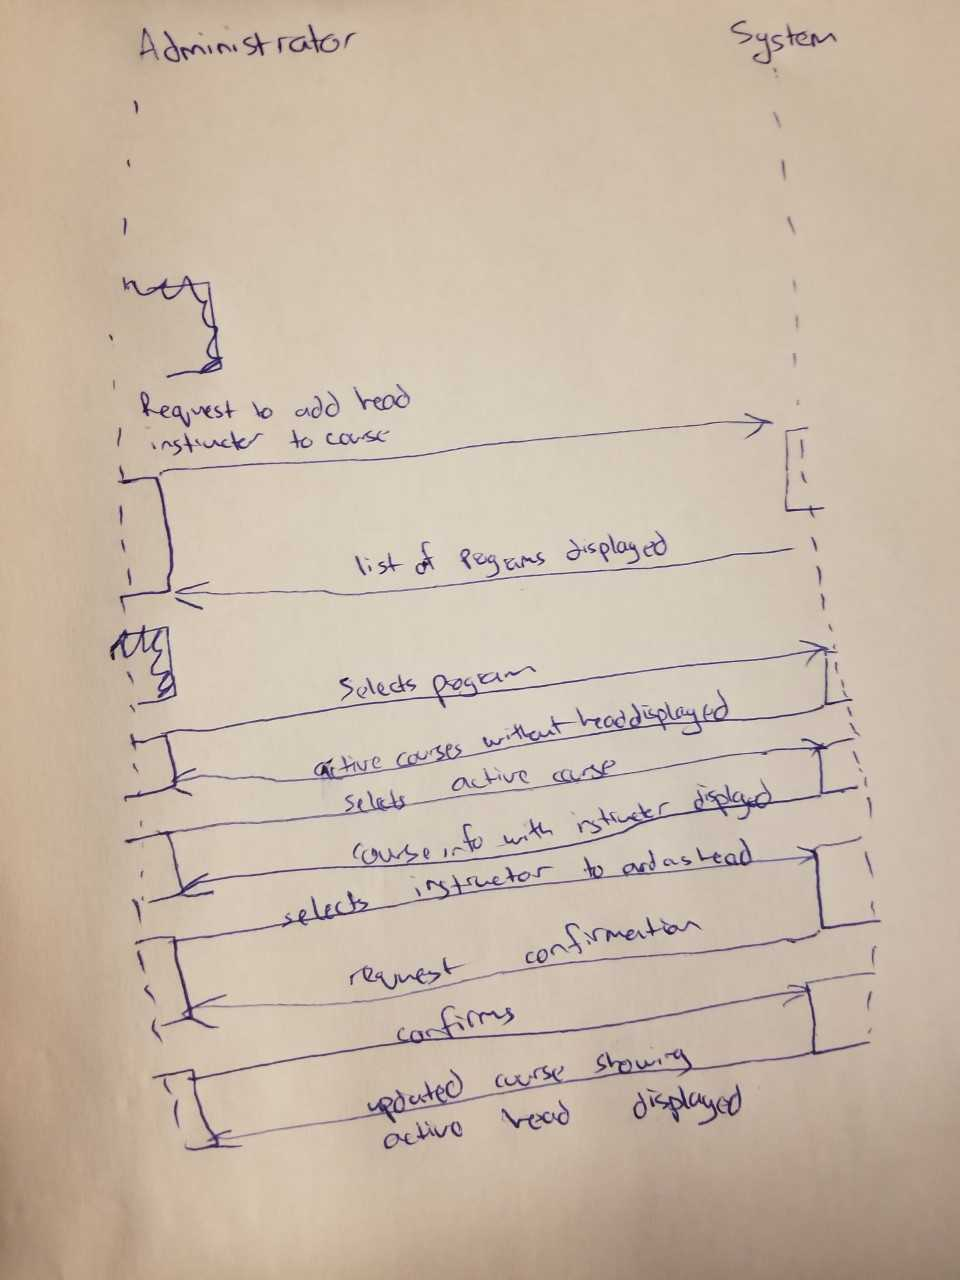 Administrator
System
Request to add head
instructer to course
list of Programs displayed
Selects program
active courses without head displayed
Selects active course
course info with instructer displayed
selects instructor to add as head
request confirmation
confirms
updated course showing
active head displayed